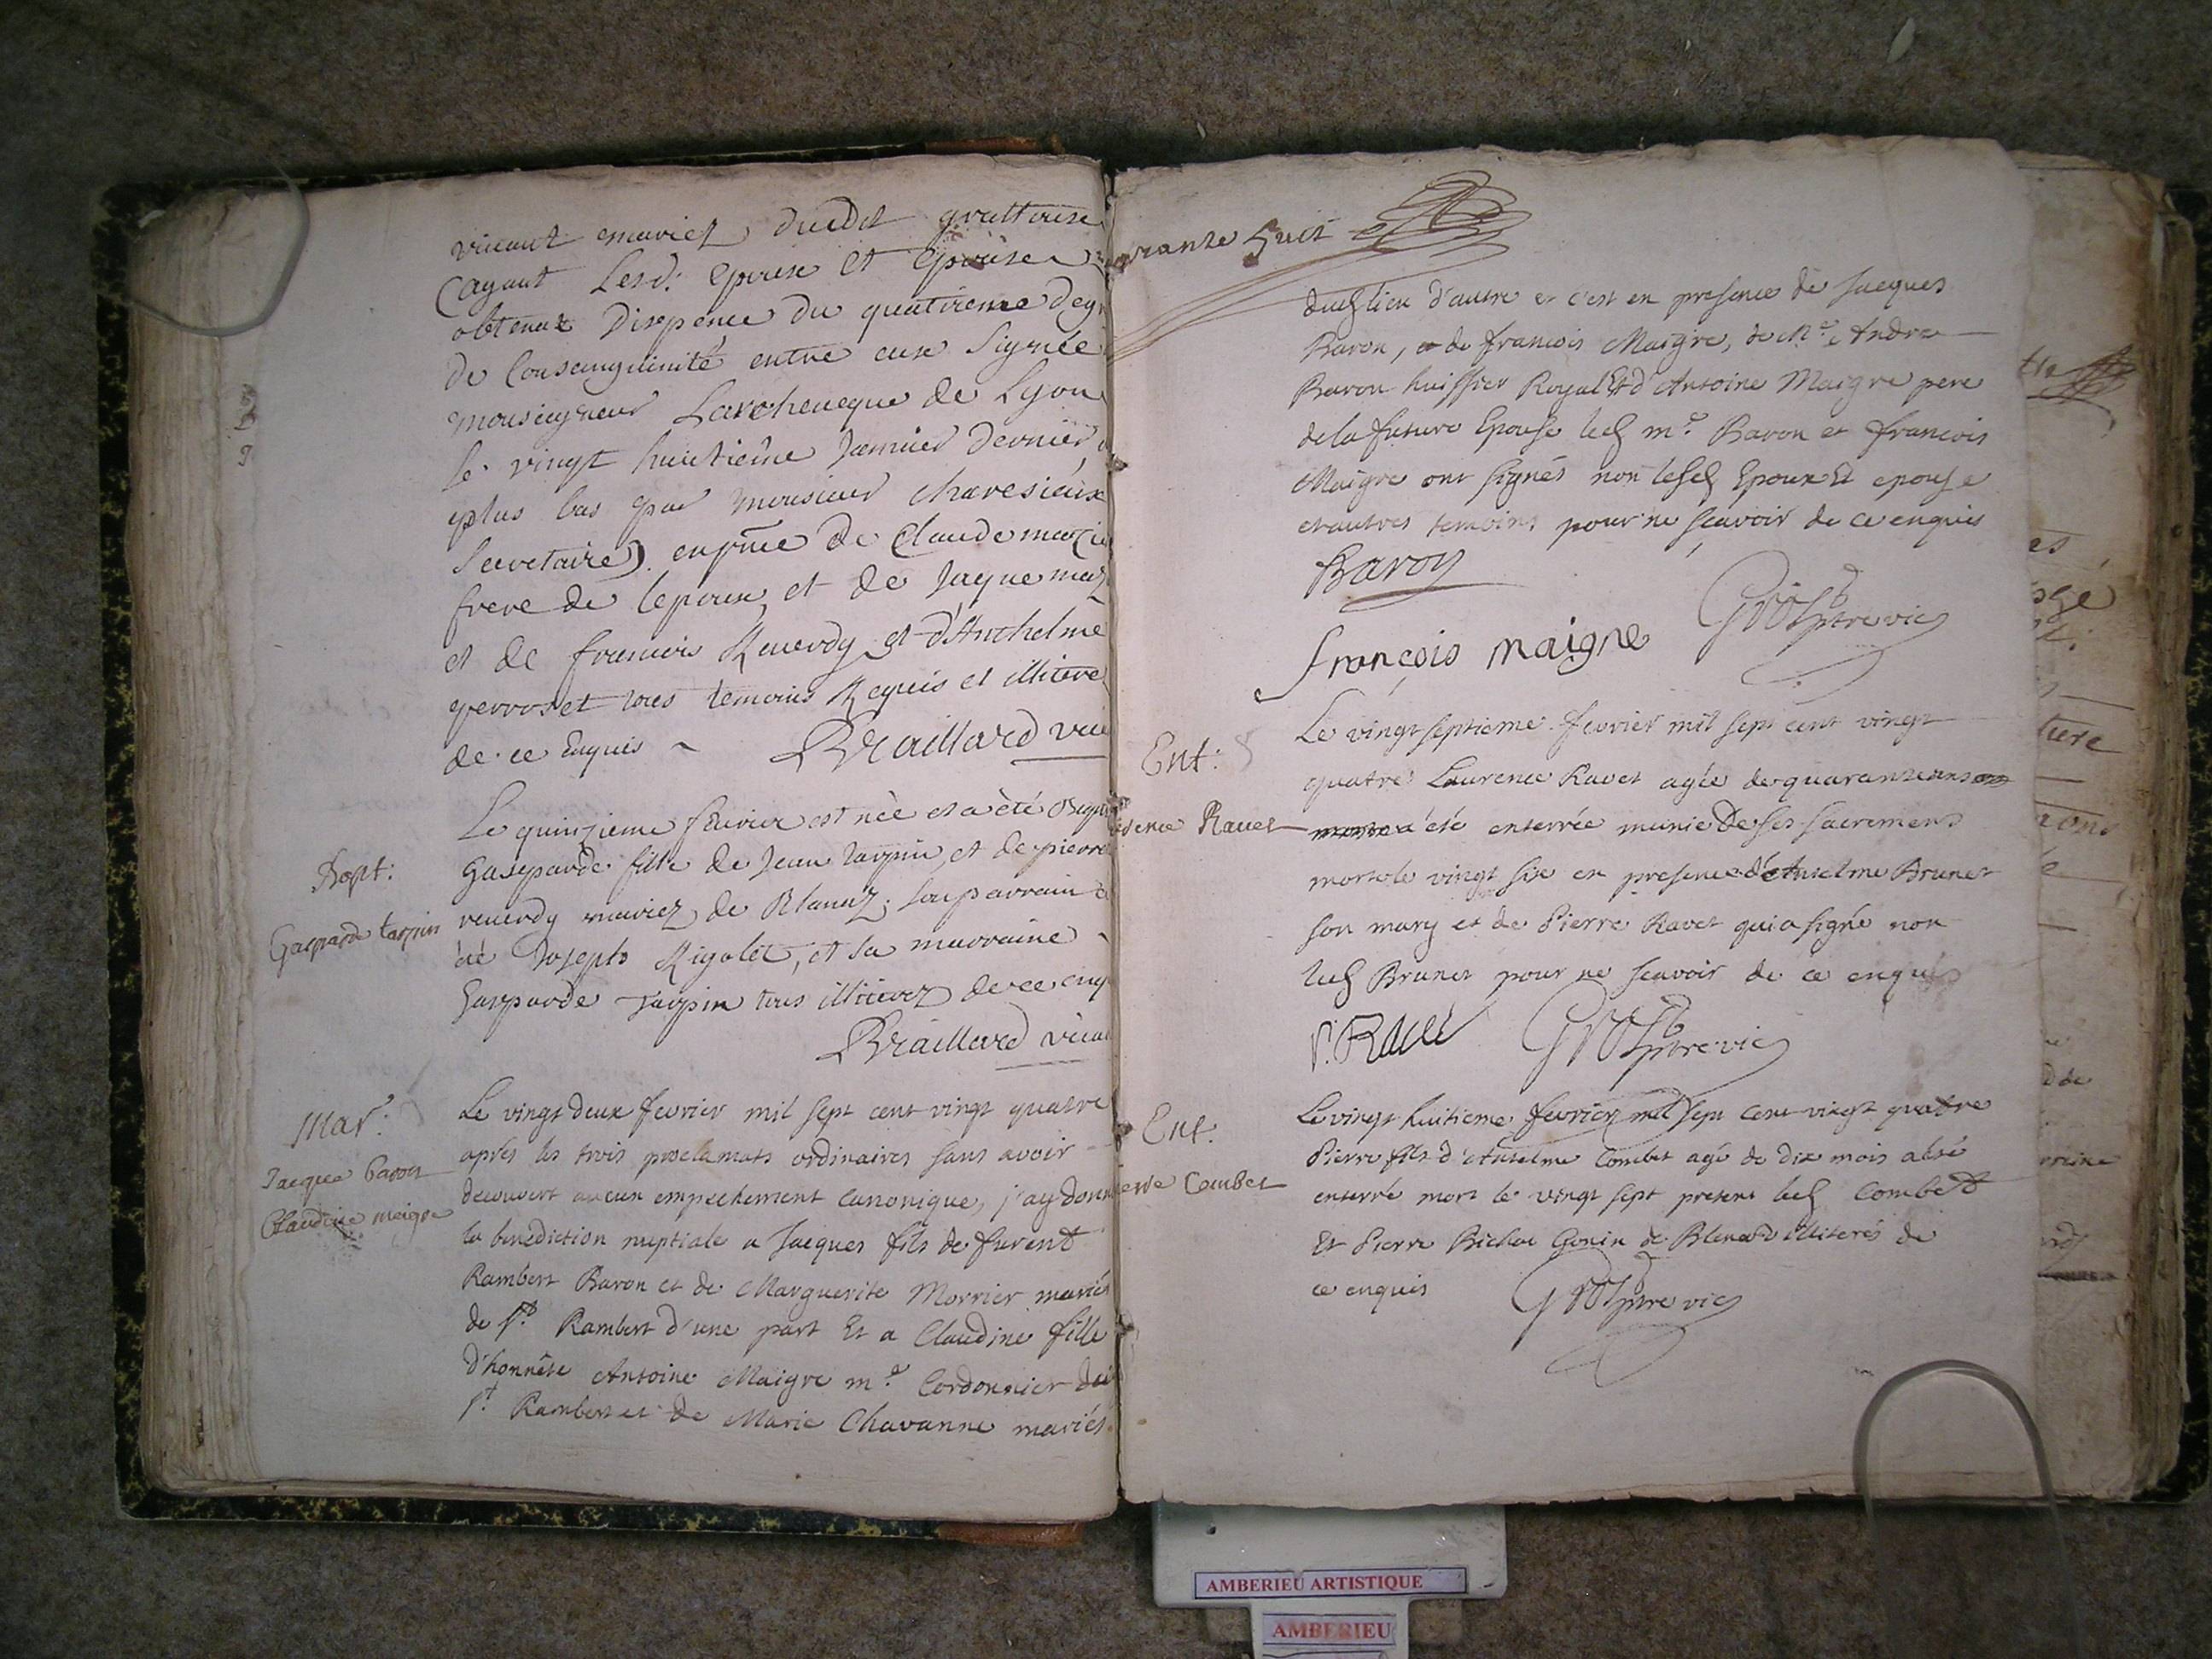 vivant mariez, duedit grattoux
(ayant Lesd: epoux et epouse
obtenux Dispence du quatrieme Deg
de Consanguinité entre eux Signée
monseigneur Larcheveque de Lyon
le vingt huitième Janvier dernier
plus bas par monsieur
Secretaire). en pnce de Claude
frere de lepoux, et de Jaque
et de francois Reverdy et d'Anthelme
et tous temoins Requis et illitere
de ce Enquis ~ Braillard vic
Bapt:
Gasparde tarpin
Le quinzieme fevrier est née et a été Bapt
Gasparde fille de Jean tarpin, et de pierre
reverdy mariez de Blanaz; son parrain a
été Joseph Rigolet, et sa marraine
Gasparde Tarpin tous illiterez de ce enq
Braillard vicai
Mar:
Jacque baron
Claudine maigre
Le vingt deux fevrier mil sept cent vingt quatre
apres les trois proclamats ordinaires sans avoir
decouvert aucun empechement canonique, j'ay donn
la benediction nuptiale a Jacques fils de furent
Rambert Baron et de Marguerite Morrier mariés
de St Rambert d'une part Et a Claudine fille
d'honnête Antoine Maigre me Cordonnier du
St Rambert et de Marie Chavanne mariés
rante huit
dud lieu d'autre et c'est en presence de Jacques
Baron, et de francois Maigre, de Me Andre
Baron huissier Royal Et d'Antoine Maigre pere
de la future Epouse led me Baron et francois
Maigre ont signés non lesd Epoux Et epouse
et autres temoins pour ne scavoir de ce enquis
Baron
françois maigre
ptre vic
Ent:
rence Ravet
Le vingt septieme fevrier mil sept cent vingt
quatre Laurence Ravet agée de quarante ans
a été enterrée munie De ses sacremens
morte le vingt six en presence d'Anselme Brunet
son mary et de Pierre Ravet qui a signé non
led Brunet pour ne scavoir de ce enquis
P. Ravé
ptre vic
Ent.
erre Combet
Le vingt huitieme fevrier mil sept cent vingt quatre
Pierre fils d'Anselme Combet agé de dix mois a été
enterré mort le vingt sept presens led Combet
Et Pierre Gonin de Blanaz illiterés de
ce enquis
ptre vic
AMBERIEU ARTISTIQUE
AMBERIEU